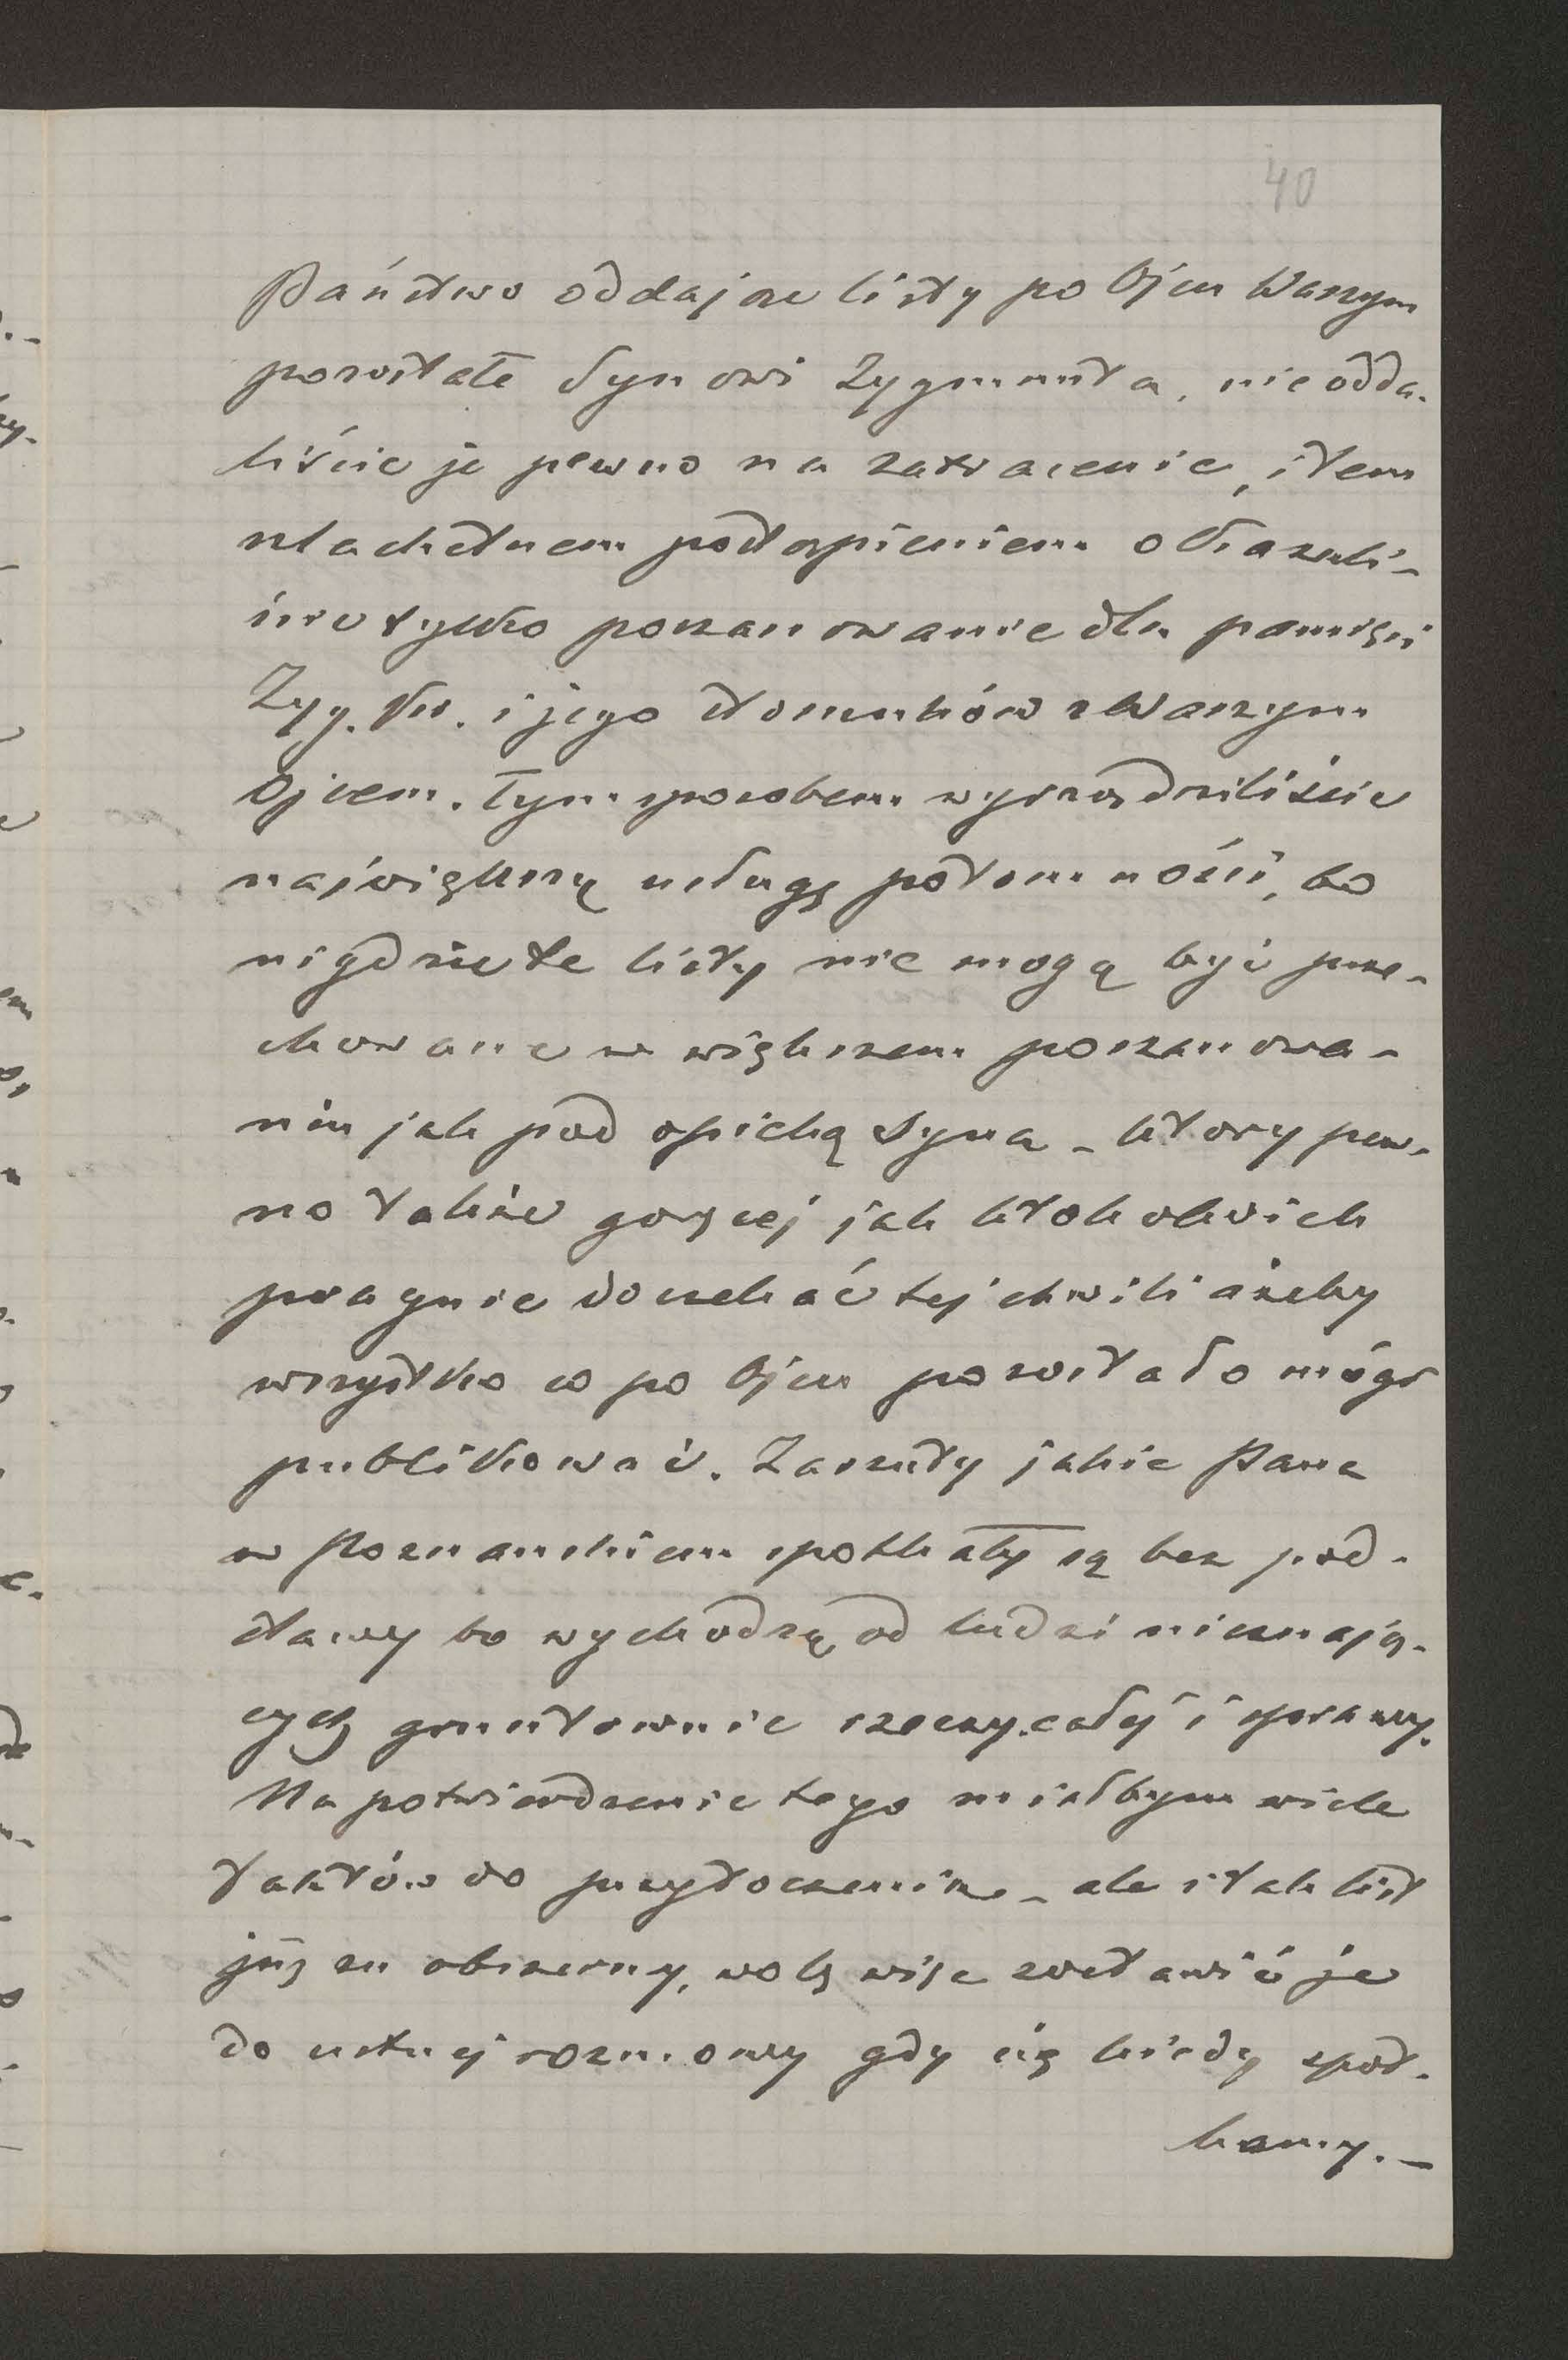 40
Państwo oddając listy po Ojcu Waszym
pozostałe Synowi Zygmunta, nie odda-
liście je pewno na zatracenie, i tem
szlachetnem postąpieniem okazali-
ście tylko poszanowanie dla pamięci
Zyg. Kr. i jego stosunków z Waszym
Ojcem. Tym sposobem wyrządziliście
największą usługę potomności, bo
nigdzie te listy nie mogą być prze-
chowane w większem poszanowa-
niu jak pod opieką Syna – który pew-
no także goręcej jak ktokolwiek
pragnie doczekać tej chwili ażeby
wszystko co po Ojcu pozostało mógł
publikować. Zarzuty jakie Pana
w Poznańskiem spotkały są bez pod-
stawy bo wychodzą od ludzi nieznają-
cych gruntownie rzeczy całej i sprawy.
Na potwierdzenie tego miałbym wiele
faktów do przytoczenia – ale i tak list
już za obszerny, wolę więc zostawić je
do ustnej rozmowy gdy się kiedy spot-
kamy. –